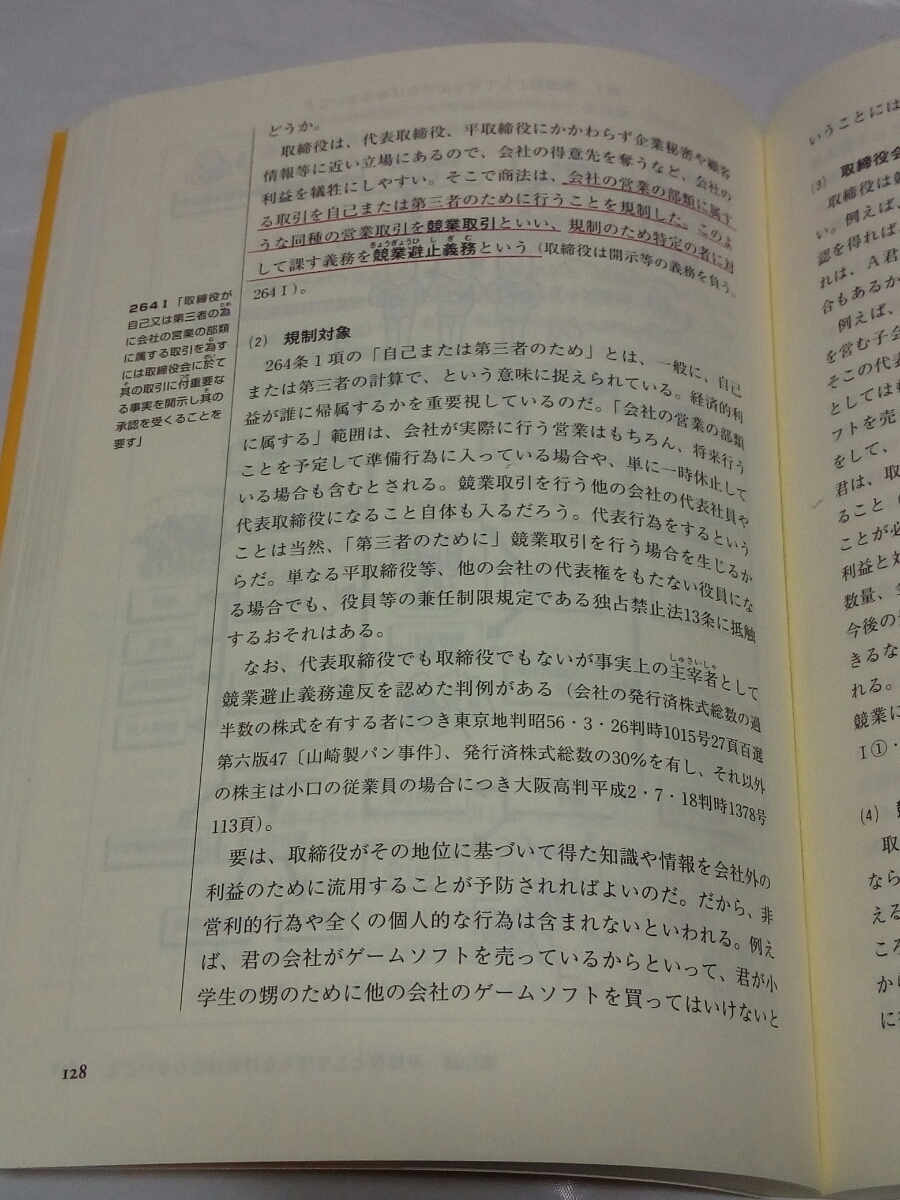 どうか。
取締役は、代表取締役、平取締役にかかわらず企業秘密や顧客
情報等に近い立場にあるので、会社の得意先を奪うなど、会社の
利益を犠牲にしやすい。そこで商法は、会社の営業の部類に属す
る取引を自己または第三者のために行うことを規制した。このよ
うな同種の営業取引を競業取引といい、規制のため特定の者に対
きょうぎょうひしぎむ
して課す義務を競業避止義務という(取締役は開示等の義務を負う。
264Ⅰ)。
264Ⅰ「取締役が
自己又は第三者の為
に会社の営業の部類
に属する取引を為す
には取締役会に於て
其の取引に付重要な
る事実を開示し其の
承認を受くることを
要す」
(2) 規制対象
264条1項の「自己または第三者のため」とは、一般に、自己
または第三者の計算で、という意味に捉えられている。経済的利
益が誰に帰属するかを重要視しているのだ。「会社の営業の部類
に属する」範囲は、会社が実際に行う営業はもちろん、将来行う
ことを予定して準備行為に入っている場合や、単に一時休止して
いる場合も含むとされる。競業取引を行う他の会社の代表社員や
代表取締役になること自体も入るだろう。代表行為をするという
ことは当然、「第三者のために」競業取引を行う場合を生じるか
らだ。単なる平取締役等、他の会社の代表権をもたない役員にな
る場合でも、役員等の兼任制限規定である独占禁止法13条に抵触
するおそれはある。
しゅさいしゃ
なお、代表取締役でも取締役でもないが事実上の主宰者として
競業避止義務違反を認めた判例がある(会社の発行済株式総数の過
半数の株式を有する者につき東京地判昭56・3・26判時1015号27頁百選
第六版47〔山崎製パン事件〕、発行済株式総数の30%を有し、それ以外
の株主は小口の従業員の場合につき大阪高判平成2・7・18判時1378号
113頁)。
要は、取締役がその地位に基づいて得た知識や情報を会社外の
利益のために流用することが予防されればよいのだ。だから、非
営利的行為や全くの個人的な行為は含まれないといわれる。例え
ば、君の会社がゲームソフトを売っているからといって、君が小
学生の甥のために他の会社のゲームソフトを買ってはいけないと
128
いうことには
(3) 取締役会
取締役は競
い。例えば、
認を得れば、
れば、A君
合もあるか
例えば、
を営む子会
そこの代表
としては
フトを売っ
をして、
君は、取
ること(
ことが必
利益と対
数量、
今後の
きるな
れる。
競業に
Ⅰ①・
(4)
取
なら
える
ころ
か
に